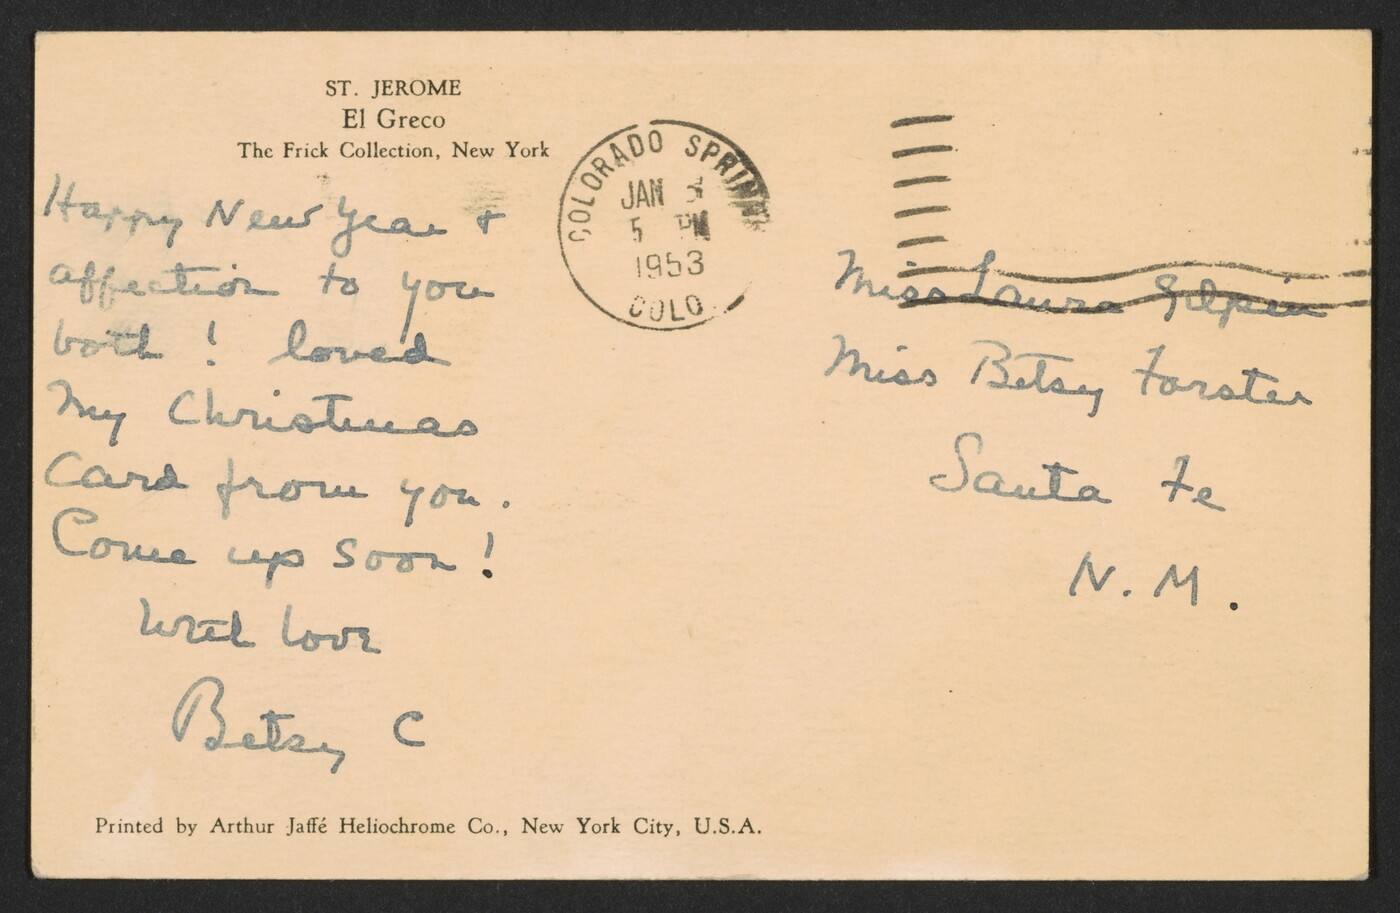 ST. JEROME
El Greco
The Frick Collection, New York
Happy New Year &
affection to you
both! loved
My Christmas
Card from you.
Come up soon!
With love
Betsy C
COLORADO SPRINGS
JAN
5 PM
1953
COLO.
Miss Laura Gilpin
Miss Betsy Forster
Santa Fe
N. M.
Printed by Arthur Jaffé Heliochrome Co., New York City, U.S.A.